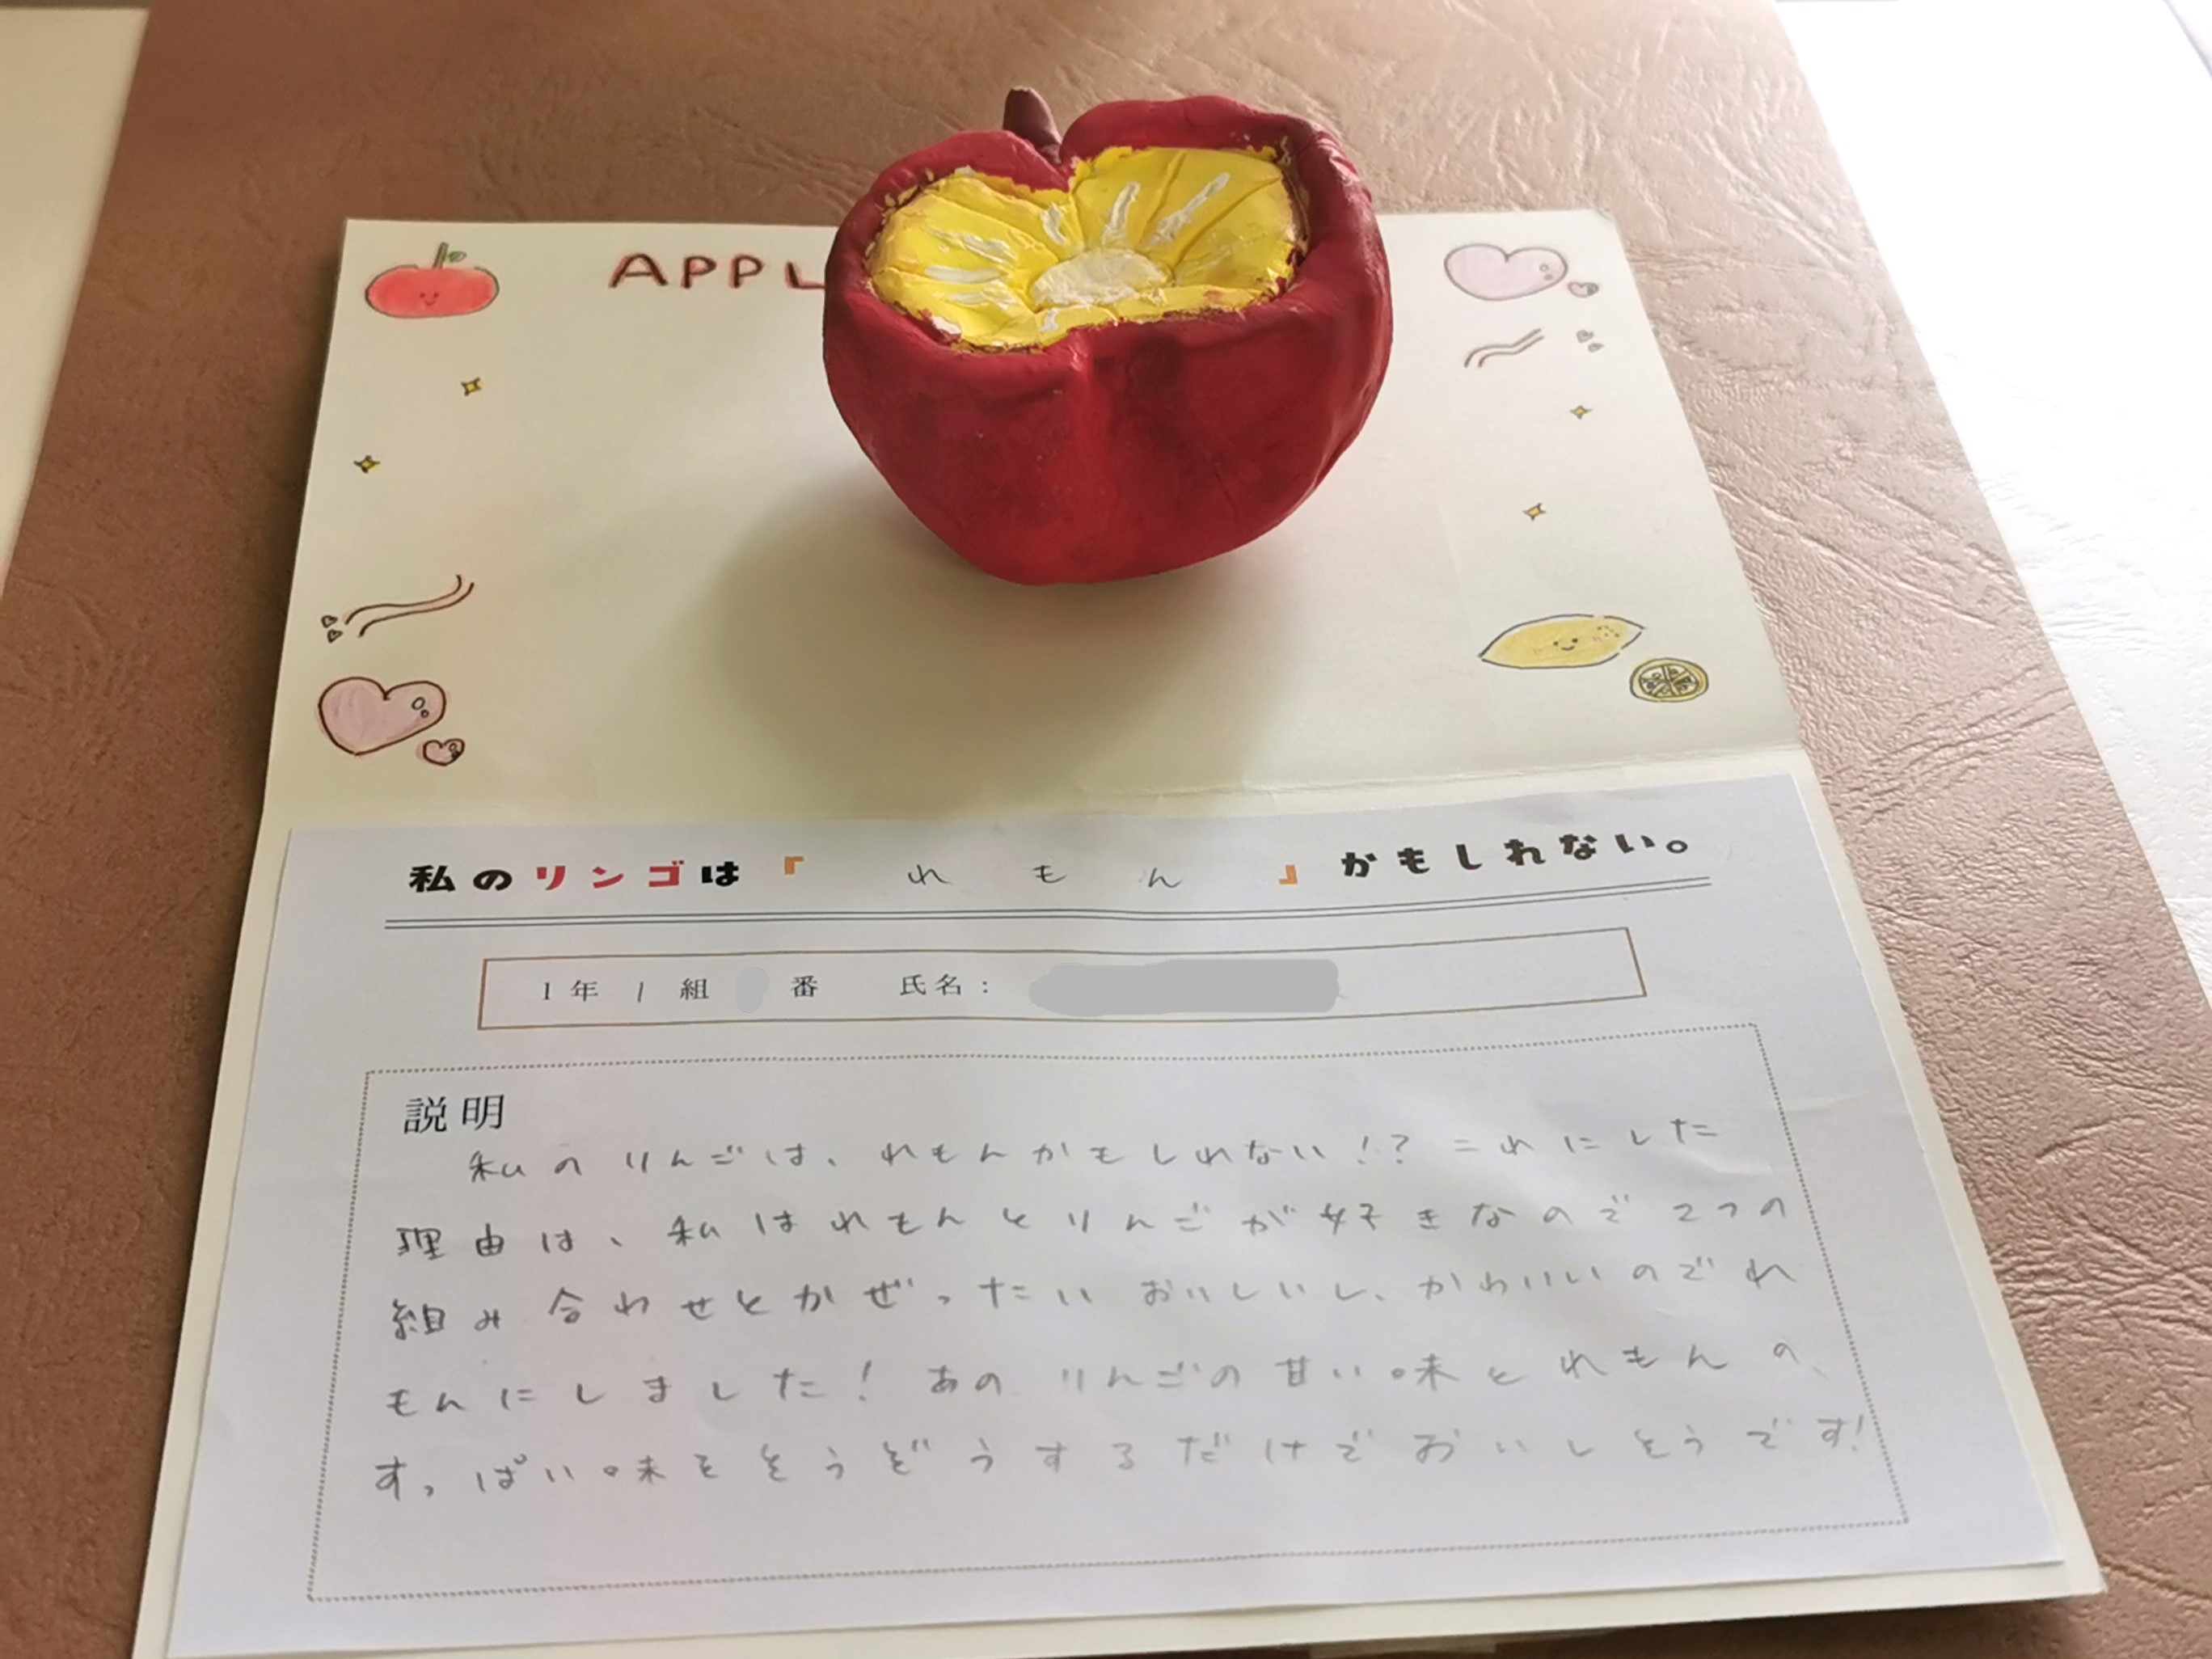 APPL
私のリンゴは『 れもん 』かもしれない。
1年 1 組 番 氏名：
説明
私のりんごは、れもんかもしれない!?これにした
理由は、私はれもんとりんごが好きなので2つの
組み合わせとかぜったいおいしいし、かわいいのでれ
もんにしました!あのりんごの甘い味とれもんの、
すっぱい味をそうぞうするだけでおいしそうです!